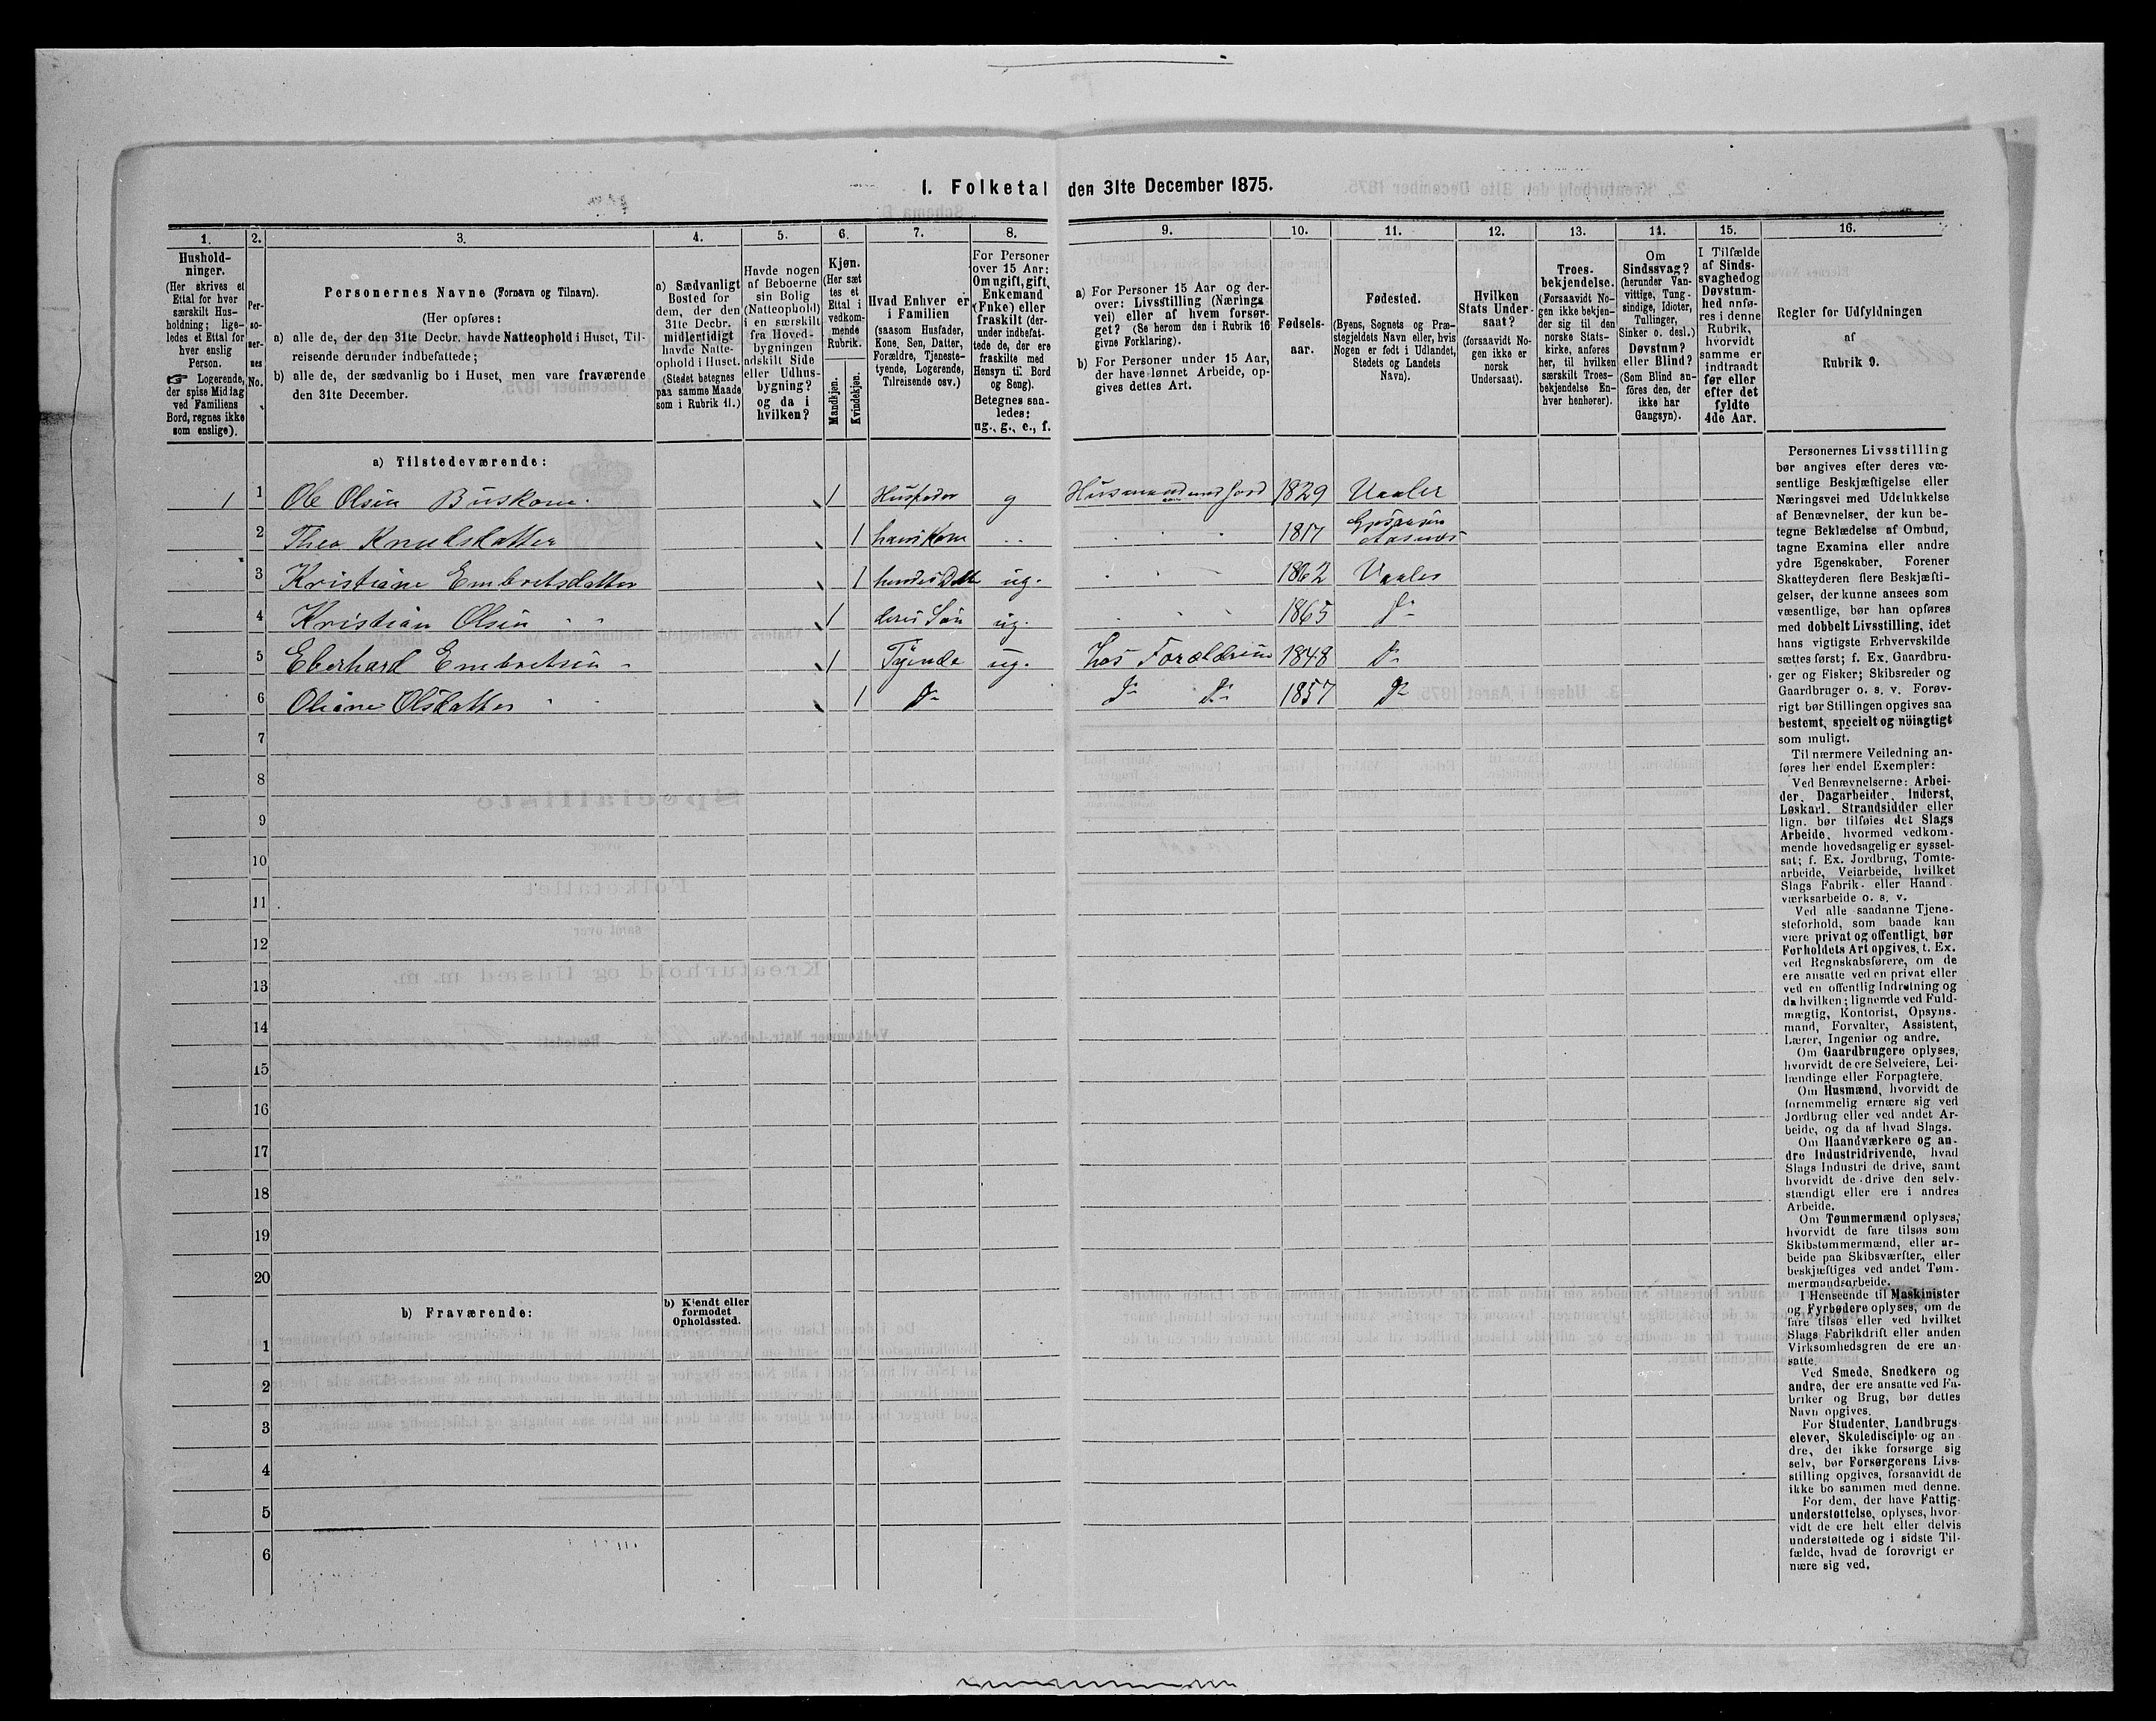 1. Folketal den 31te December 1875.
1. 2. 3. 4. 5. 6. 7. 8. 9. 10. 11. 12. 13. 14. 15. 16.
Hushold-
ninger.
(Her skrives et
Ettal for hver
særskilt Hus-
holdning; lige-
ledes et Ettal for
hver enslig
Person.
☞ Logerende,
der spise Middag
ved Familiens
Bord, regnes ikke
som enslige).
Per-
so-
ner-
nes
No.
Personernes Navne (Fornavn og Tilnavn).
(Her opføres:
a) alle de, der den 31te Decbr. havde Natteophold i Huset, Til-
reisende derunder indbefattede;
b) alle de, der sædvanlig bo i Huset, men vare fraværende
den 31te December.
a) Sædvanligt
Bosted for
dem, der den
31te Decbr.
midlertidigt
havde Natte-
ophold i Huset.
(Stedet betegnes
paa samme Maade
som i Rubrik 11.)
Havde nogen
af Beboerne
sin Bolig
(Natteophold)
i en særskilt
fra Hoved-
bygningen
adskilt Side
eller Udhus-
bygning?
og da i
hvilken?
Kjøn.
(Her sæt
tes et
Ettal i
vedkom-
mende
Rubrik.
Mandkjøn.
Kvindekjøn.
Hvad Enhver er
i Familien
(saasom Husfader,
Kone, Søn, Datter,
Forældre, Tjeneste-
tyende, Logerende,
Tilreisende osv.)
For Personer
over 15 Aar:
Om ugift, gift,
Enkemand
(Enke) eller
fraskilt (der-
under indbefat-
tede de, der ere
fraskilte med
Hensyn til Bord
og Seng).
Betegnes saa-
ledes:
ug., g., e., f.
a) For Personer 15 Aar og der-
over: Livsstilling (Nærings
vei) eller af hvem forsør-
get? (Se herom den i Rubrik 16
givne Forklaring).
b) For Personer under 15 Aar,
der have lønnet Arbeide, op-
gives dettes Art.
Fødsels-
aar.
Fødested.
(Byens, Sognets og Præ-
stegjeldets Navn eller, hvis
Nogen er født i Udlandet,
Stedets og Landets
Navn).
Hvilken
Stats Under-
saat?
(forsaavidt No-
gen ikke er
norsk
Undersaat).
Troes-
bekjendelse.
(Forsaavidt No-
gen ikke bekjen-
der sig til den
norske Stats-
kirke, anføres
her, til hvilken
særskilt Troes-
bekjendelse En-
hver henhører).
Om
Sindssvag?
(herunder Van-
vittige, Tung-
sindige, Idioter,
Tullinger,
Sinker o. desl.)
Døvstum?
eller Blind?
(Som Blind an-
föres den, der
ikke har
Gangsyn).
I Tilfælde
af Sinds-
svaghed og
Døvstum-
hed anfø-
res i denne
Rubrik,
hvorvidt
samme er
indtraadt
før eller
efter det
fyldte
4de Aar.
Regler for Udfyldningen
af
Rubrik 9.
a) Tilstedeværende:
1 1 Ole Olsen Buskom. 1 Husfader g Husmand med Jord 1829 Vaaler
2 Thea Knudsdatter 1 hans Kone 1817 Aasnes
3 Kristiane Embretsdatter 1 hendes Datt ug. 1862 Vaaler
4 Kristian Olsen 1 deres Søn ug. 1865 Do
5 Eberhard Embretsen 1 Tyende ug. hos Forældrene 1848 Do
6 Oliane Olsdatter 1 Do Do Do 1857 Do
7
8
9
10
11
12
13
14
15
16
17
18
19
20
b) Fraværende:
b) Kjendt eller
formodet
Opholdssted.
1
2
3
4
5
6
Personernes Livsstilling
bør angives efter deres væ-
sentlige Beskjæftigelse eller
Næringsvei med Udelukkelse
af Benævnelser, der kun be-
tegne Beklædelse af Ombud,
tagne Examina eller andre
ydre Egenskaber. Forener
Skatteyderen flere Beskjæfti-
gelser, der kunne ansees som
væsentlige, bør han opføres
med dobbelt Livsstilling, idet
hans vigtigste Erhvervskilde
sættes først; f. Ex. Gaardbru-
ger og Fisker; Skibsreder og
Gaardbruger o. s. v. Forøv-
rigt bør Stillingen opgives saa
bestemt, specielt og nöiagtigt
som muligt.
Til nærmere Veiledning an-
føres her endel Exempler:
Ved Benævnelserne: Arbei-
der, Dagarbeider, Inderst,
Løskarl, Strandsidder eller
lign. bør tilføies det Slags
Arbeide, hvormed vedkom-
mende hovedsagelig er syssel-
sat; f. Ex. Jordbrug, Tomte-
arbeide, Veiarbeide, hvilket
Slags Fabrik- eller Haand-
værksarbeide o. s. v.
Ved alle saadanne Tjene-
steforhold, som baade kan
være privat og offentligt, bør
Forholdets Art opgives, t. Ex.
ved Regnskabsførere, om de
ere ansatte ved en privat eller
ved en offentlig Indretning og
da hvilken; lignende ved Fuld-
mægtig, Kontorist, Opsyns-
mand, Forvalter, Assistent,
Lærer, Ingeniør og andre.
Om Gaardbrugere oplyses,
hvorvidt de ere Selveiere, Lei-
lændinge eller Forpagtere.
Om Husmænd, hvorvidt de
fornemmelig ernære sig ved
Jordbrug eller ved andet Ar-
beide, og da af hvad Slags.
Om Haandværkere og an-
dre Industridrivende, hvad
Slags Industri de drive, samt
hvorvidt de drive den selv-
stændigt eller ere i andres
Arbeide.
Om Tømmermænd oplyses,
hvorvidt de fare tilsøs som
Skibstømmermænd, eller ar-
beide paa Skibsværfter, eller
beskjæftiges ved andet Tøm-
mermandsarbeide.
I Henseende til Maskinister
og Fyrbødere oplyses, om de
fare tilsøs eller ved hvilket
Slags Fabrikdrift eller anden
Virksomhedsgren de ere an-
satte.
Ved Smede, Snedkere og
andre, der ere ansatte ved Fa-
briker og Brug, bør dettes
Navn opgives.
For Studenter, Landbrugs-
elever, Skoledisciple og an-
dre, der ikke forsørge sig
selv, bør Forsørgerens Livs-
stilling opgives, forsaavidt de
ikke bo sammen med denne.
For dem, der have Fattig-
understøttelse, oplyses, hvor-
vidt de ere helt eller delvis
understøttede og i sidste Til-
fælde, hvad de forøvrigt er
nære sig ved.